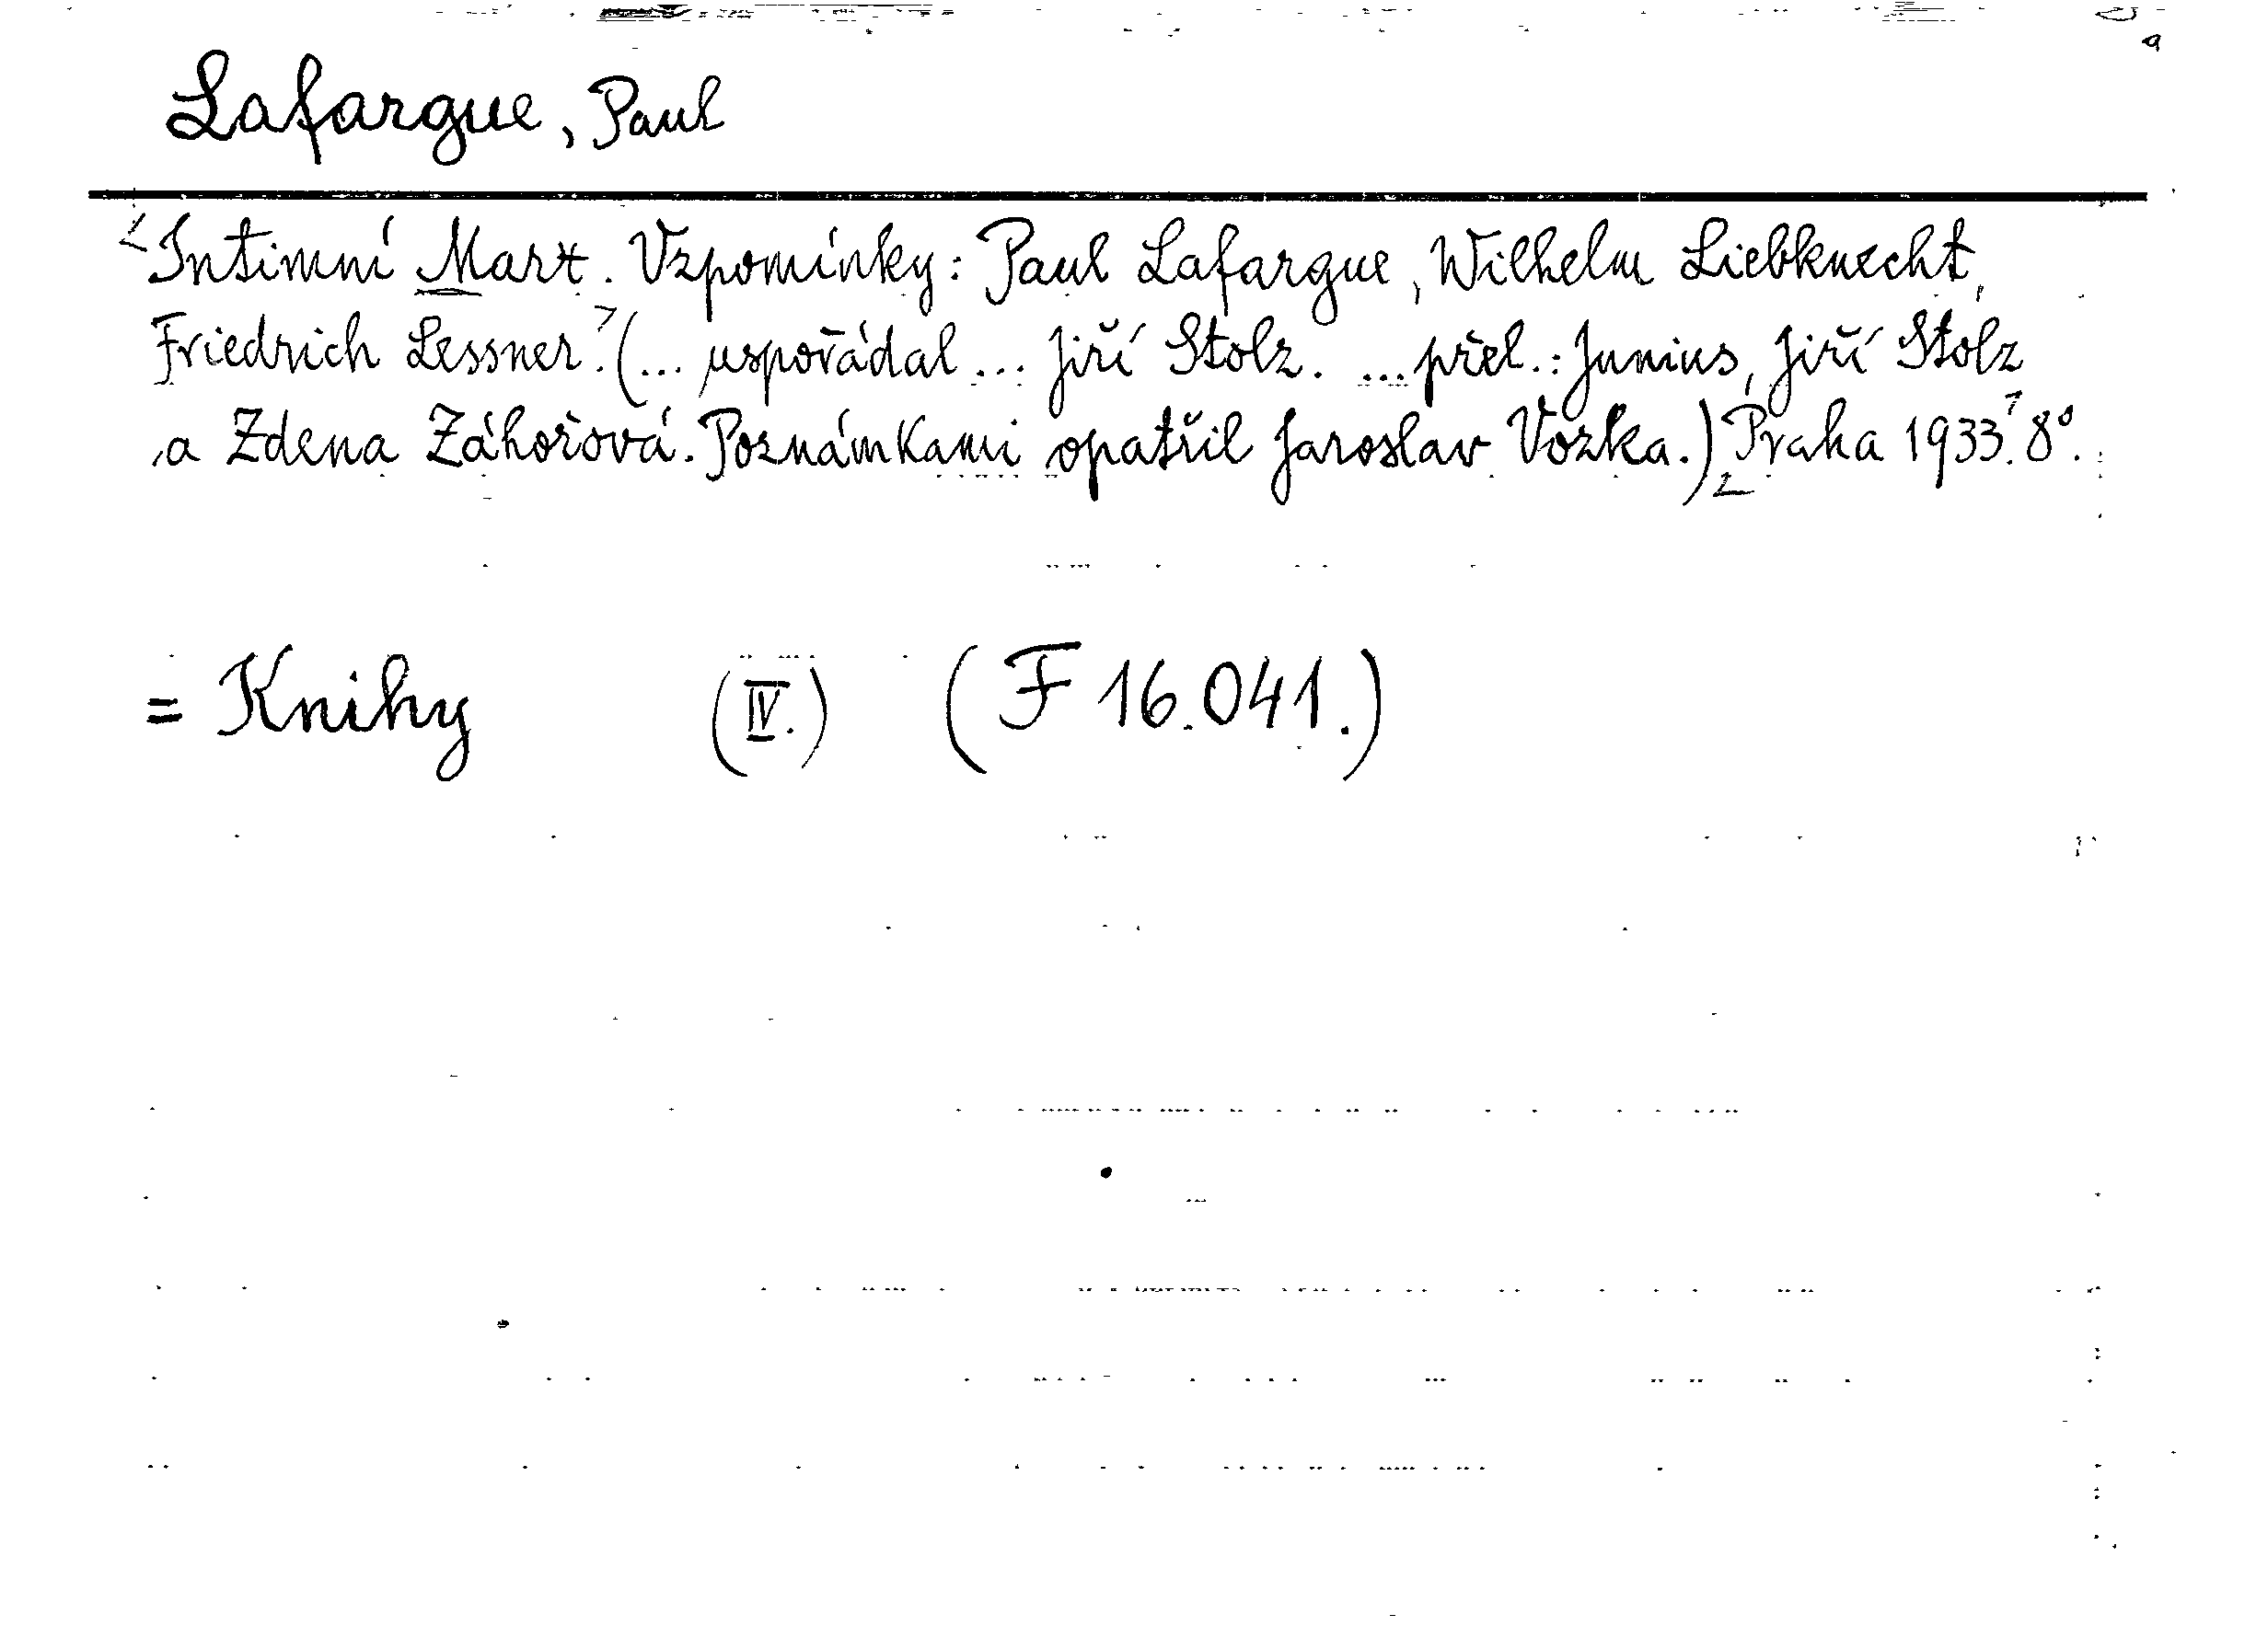 Lafargue, Paul
Intimní Marx. Vzpomínky: Paul Lafargue, Wilhelm Liebknecht,
Friedrich Lessner. (... uspořádal ... Jiří Stolz. ... přel.: Junius, Jiří Stolz
a Zdena Záhořová. Poznámkami opatřil Jaroslav Vozka.) Praha 1933. 8°.
= Knihy (IV.) (F 16.041.)